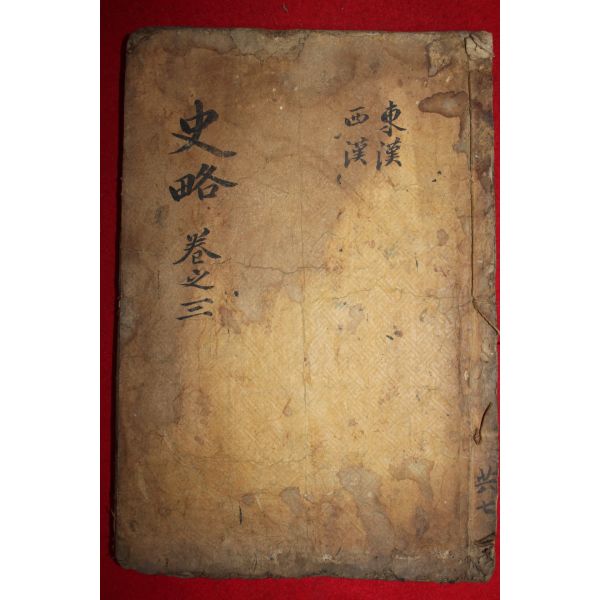 共七
東漢
西漢
史略 卷之三